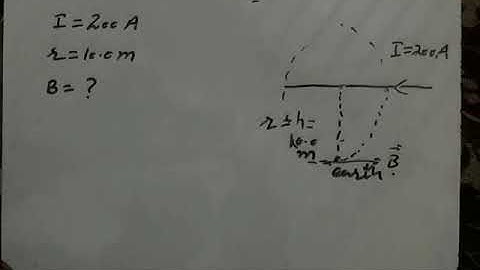 I = 200 A
r = 10.0 m
B = ?
I = 200A
r = h =
10.0
m
earth
B